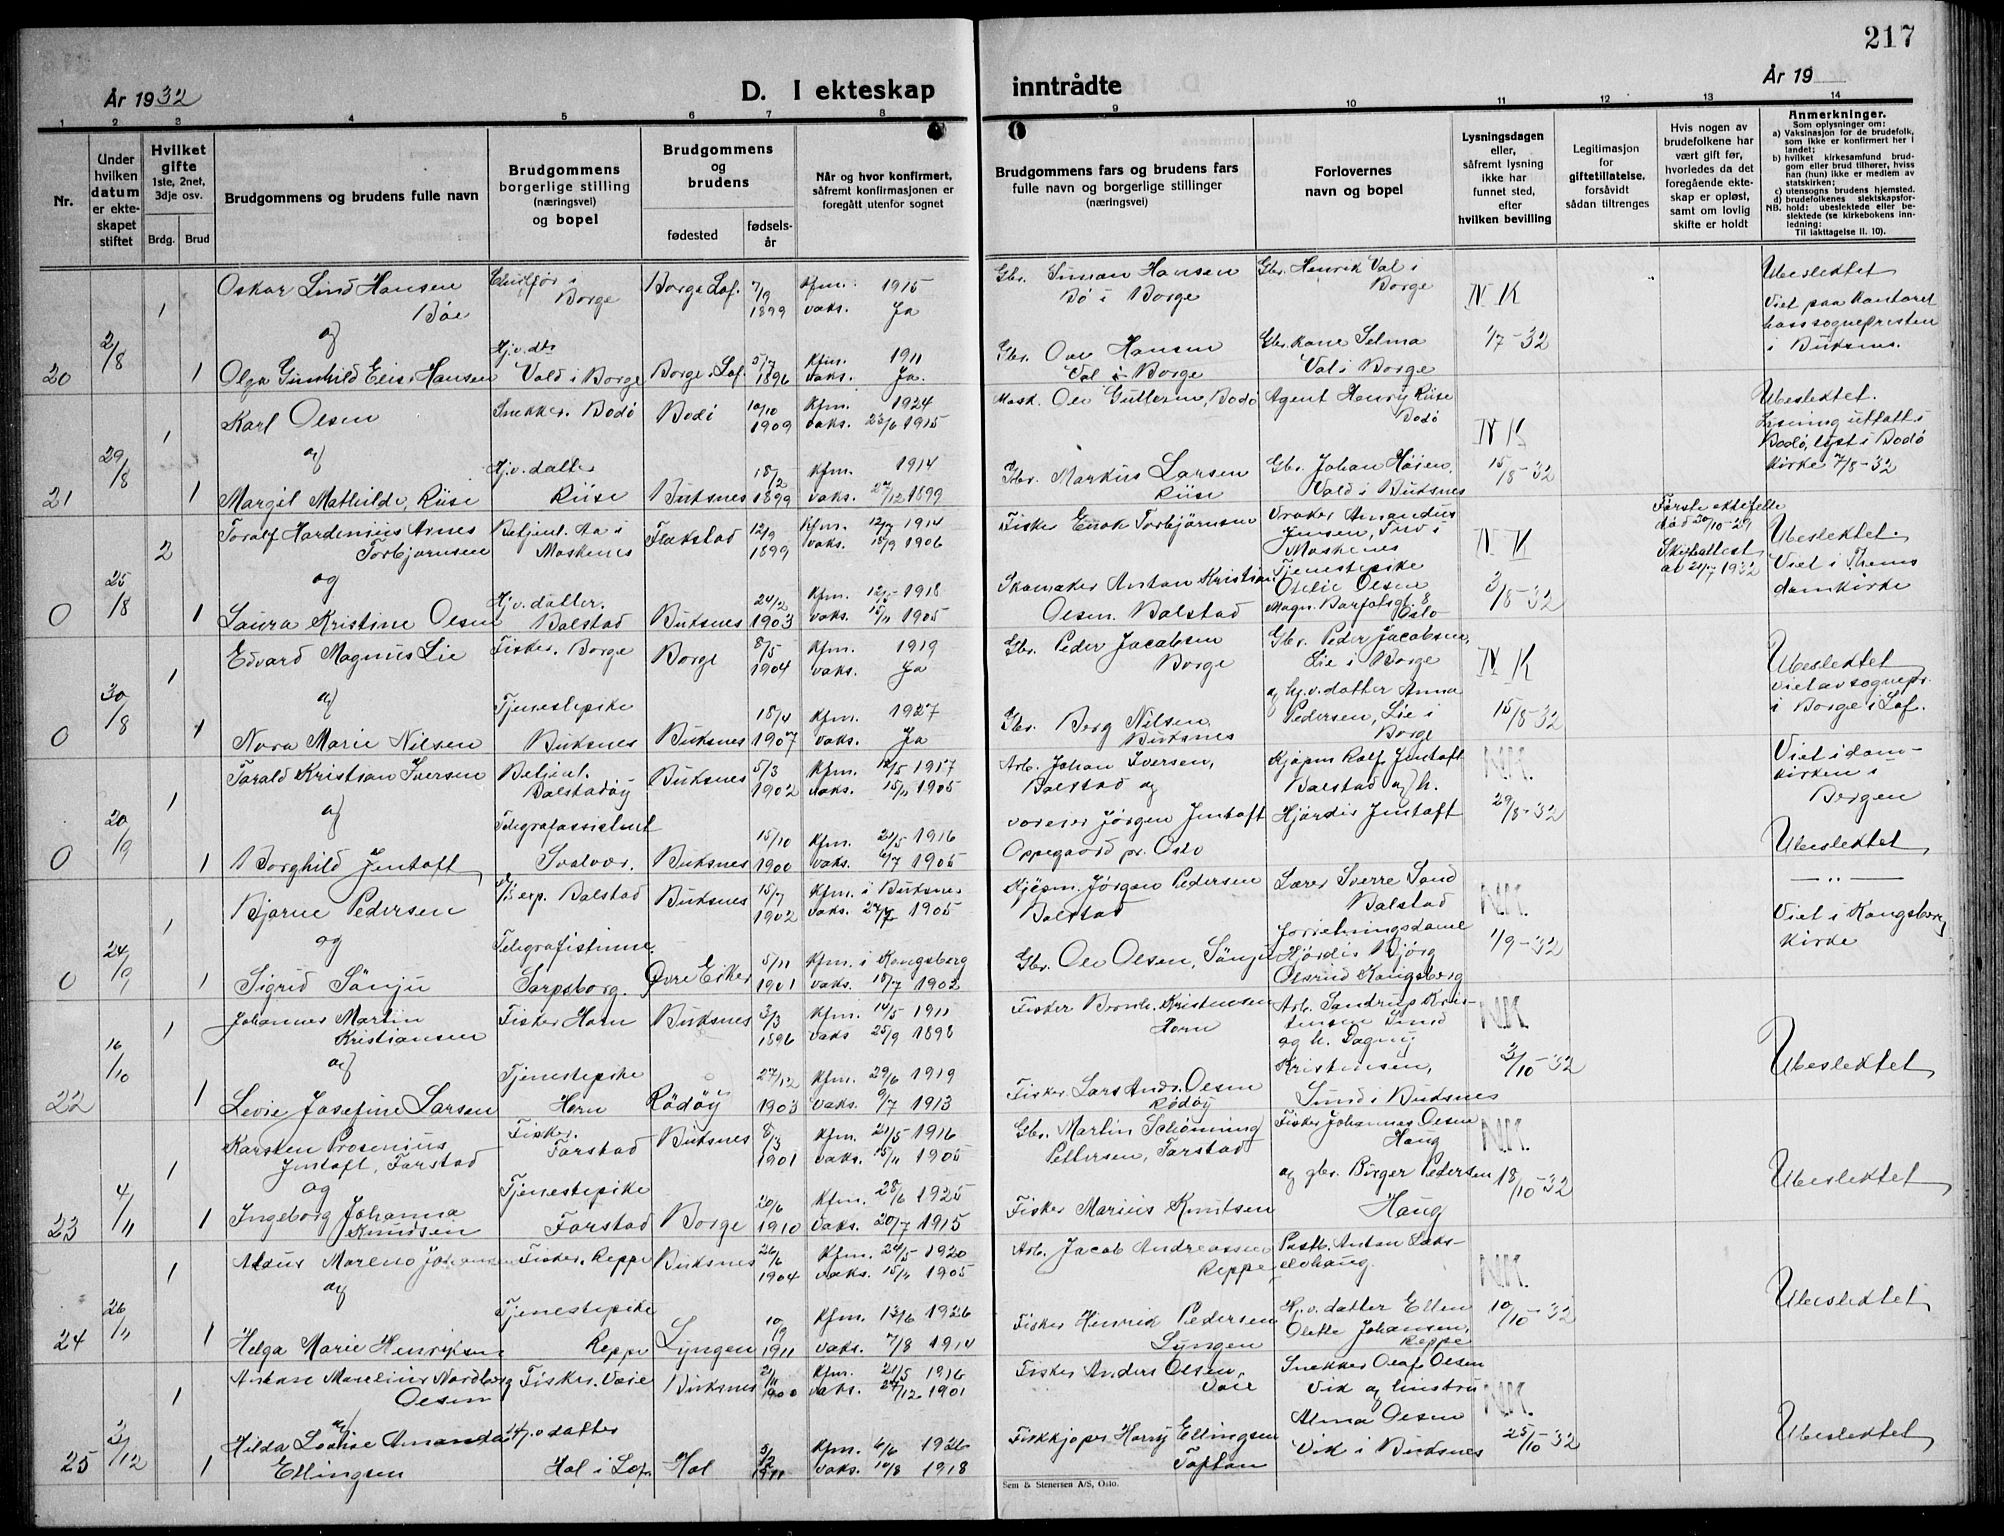 217
År 1932
D. I ekteskap
inntrådte
År 19
1 2 3 4 5 6 7 8 9 10 11 12 13 14
Nr.
Under
hvilken
datum
er ekte-
skapet
stiftet
Hvilket
gifte
1ste, 2net,
3dje osv.
Brdg. Brud
Brudgommens og brudens fulle navn
Brudgommens
borgerlige stilling
(næringsvei)
og bopel
Brudgommens
og
brudens
fødested
fødsels-
år
Når og hvor konfirmert,
såfremt konfirmasjonen er
foregått utenfor sognet
Brudgommens fars og brudens fars
fulle navn og borgerlige stillinger
(næringsvei)
Forlovernes
navn og bopel
Lysningsdagen
eller,
såfremt lysning
ikke har
funnet sted,
efter
hvilken bevilling
Legitimasjon
for
giftetillatelse,
forsåvidt
sådan tiltrenges
Hvis nogen av
brudefolkene har
vært gift før,
hvorledes da det
foregående ekte-
skap er opløst,
samt om lovlig
skifte er holdt
Anmerkninger.
Som oplysninger om:
a) Vaksinasjon for de brudefolk,
som ikke er konfirmert her i
landet;
b) hvilket kirkesamfund brud-
gom eller brud tilhører, hviss
han (hun) ikke er medlem av
statskirken;
c) utensogns brudens hjemsted.
d) brudefolkenes slektskapsfor-
NB. hold: ubeslektede eller be-
slektede (se kirkebokens inn-
ledning:
Til iakttagelse II. 10).
20 2/8 1 Oskar Lind Hansen
Böe
Borge
Borge Lof. 7/9 1899
Kfm. 1915
vaks. Ja
Gbr. Simon Hansen
Bö i Borge
Gbr. Henrik Val i
Borge
N K
Ubeslektet
Viet paa kontoret
hos sognepresten
i Buksnes.
og
1 Olga Gunhild Elise Hansen
Hj.v. dtr
Vald i Borge
Borge i Lof. 5/7 1896
Kfm. 1911
vaks. Ja.
Gbr. Ove Hansen
Val i Borge
Gbr. kone Selma
Val i Borge
1/7-32
21 29/8 1 Karl Olsen
Snekker. Bodö
Bodö 10/10 1909
Kfm. 1924
vaks. 23/6 1915
Mask. Ole Guttorm, Bodö
Agent Henry Riise
Bodö
N K
Ubeslektet.
Lysning uttatt i
Bodö, lyst i Bodö
kirke 7/8-32
og
1 Margit Mathilde Riise
Hj.v. datter
Riise
Buksnes 18/2 1899
Kfm. 1914
vaks. 27/12 1899
Gbr. Markus Larsen
Riise
Gbr. Johan Höien,
Vald i Buksnes
15/8-32
0 25/8 2 Toralf Hardenius Arnes
Torbjörnsen
Betjent. Aa i
Moskenes
Flakstad 12/9 1899
Kfm. 12/7 1914
vaks. 18/9 1906
Fisker Enok Torbjörnsen
Vraker Amandus
Jensen, Tuv i
Moskenes
N K
Første ektefelle
död 20/10-29
Skifteattest
av 21/7 1932
Ubeslektet.
Viet i Thems
domkirke
og
1 Laura Kristine Olsen
Hj.v. datter.
Balstad
Buksnes 24/2 1903
Kfm. 12/5 1918
vaks. 15/11 1905
Skomaker Anton Kristian
Olsen. Balstad
Tjenestepike
Otelie Olsen
Magn. Barfotsgt. 8
Oslo
3/8-32
0 30/8 1 Edvard Magnus Lie
Fisker. Borge
Borge 8/5 1904
Kfm. 1919
vaks. Ja
Gbr. Peder Jacobsen
Borge
Gbr. Peder Jacobsen,
Lie i Borge
N K
Ubeslektet
viet av sognepr.
i Borge i Lof.
og
1 Nora Marie Nilsen
Tjenestepike
Buksnes
Buksnes 18/4 1907
Kfm. 1927
vaks. Ja
Gbr. Berg Nilsen
Buksnes
og hj.v. datter Anna
Pedersen, Lie i
Borge
15/8-32
0 20/9 1 Tarald Kristian Iversen
Betjent.
Balstadöy
Buksnes 5/3 1902
Kfm. 1917
vaks. 15/11 1905
Arb. Johan Iversen,
Balstad og
Kjöpm Rolf Jentoft
Balstad og h.
N.K.
Viet i dom-
kirken i
Bergen
og
1 Borghild Jentoft
Telegrafassistent
Svolvær.
Buksnes 15/10 1900
Kfm. 21/5 1916
vaks. 6/7 1905
Jörgen Jentoft
Oppegaard pr. Oslo
Hjördis Jentoft
29/8-32
Ubeslektet
0 24/9 1 Bjarne Pedersen
Balstad
Buksnes 15/7 1902
Kfm. i Buksnes
vaks. 1905
Kjöpm. Jörgen Pedersen
Balstad
Lærer Sverre Sand
Balstad
N.K.
— „ —
Viet i Kongsberg
kirke
og
1 Sigrid Sönju
Telegrafistinne
Sarpsborg.
Övre Eiker 5/11 1901
Kfm. i Kongsberg
vaks. 18/7 1902
Gbr. Ole Olsen, Sönju
forretningsdame
Hjördis Bjørg
Kongsberg
1/9-32
22 16/10 1 Johannes Martin
Kristiansen
Fisker Horn
Buksnes 3/3 1896
Kfm. 14/5 1911
vaks 25/9 1898
Fisker Kristensen
Horn
Arb. Sandrup Kris-
tensen Sund
og h. Dagny
N.K.
Ubeslektet
og
1 Levie Josefine Larsen
Tjenestepike
Horn
Rödöy 27/12 1903
Kfm. 29/6 1919
vaks. 9/7 1913
Fisker Lars Andr. Olsen
Rödöy
Kristensen,
Sund i Buksnes
3/10-32
23 4/11 1 Karsten Prosenius
Jentoft, Farstad
Fisker.
Farstad
Buksnes 8/3 1901
Kfm. 21/5 1916
vaks. 15/11 1905
Gbr. Martin Schönning
Pettersen, Farstad
Fisker Johannes Olsen
Haug
N.K.
Ubeslektet
og
1 Ingeborg Johanna
Knudsen
Tjenestepike
Farstad
Borge 20/6 1910
Kfm. 28/6 1925
vaks. 20/7 1915
Fisker Marius Knutsen
og gbr. Birger Pedersen
Haug
18/10-32
24 26/11 1 Aldus Moreno Johansen
Fisker. Reppe
Buksnes 26/6 1904
Kfm. 24/5 1920
vaks. 15/11 1905
Arb. Jacob Andreassen
Reppe
Postb. Anton Laks-
elvhaug.
N.K.
Ubeslektet
og
1 Helga Marie Henriksen
Tjenestepike
Reppe
Lyngen 10/9 1911
Kfm. 13/6 1926
vaks. 7/8 1914
Fisker Henrik Pedersen
Lyngen
Hj.v. datter Ellen
Olette Johansen,
Reppe
10/10-32
25 3/12 1 Anton Marelius Nordberg
Olsen
Fisker. Voie
Buksnes 2/11 1900
Kfm. 21/5 1916
vaks. 27/12 1901
Fisker Anders Olsen,
Voie
Snekker Olaf Olsen
Vik og hustru
N.K.
Ubeslektet
og
1 Hilda Lovise Amanda
Ellingsen
Hj.v. datter
Hol i Lof.
Hol 5/2 1911
Kfm. 6/6 1926
vaks. 10/8 1918
Fiskkjöper Harry Ellingsen
Toftan
Alma Olsen
Vik i Buksnes
25/10-32
Sem & Stenersen A/S, Oslo.